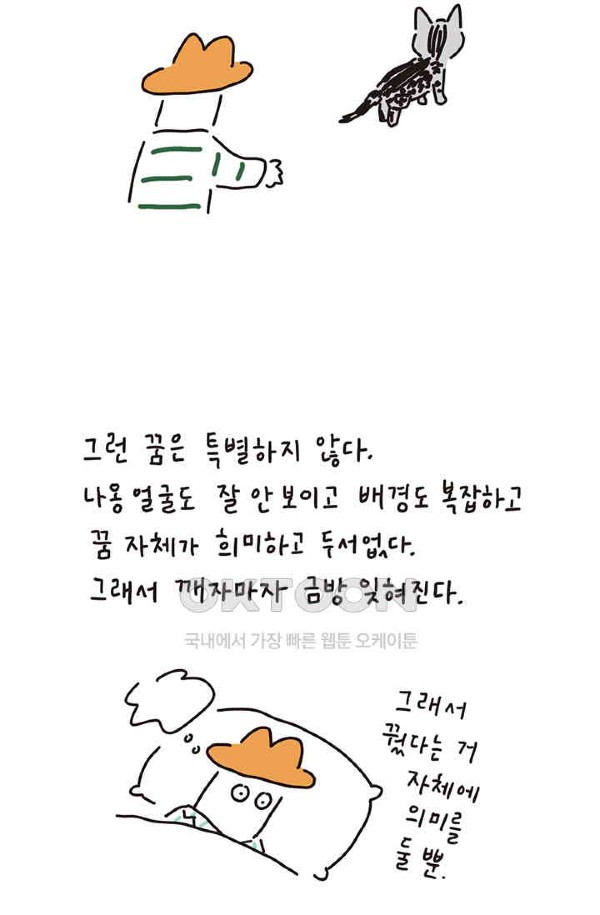 그런 꿈은 특별하지 않다.
나옹 얼굴도 잘 안 보이고 배경도 복잡하고
꿈 자체가 희미하고 두서없다.
그래서 깨자마자 금방 잊혀진다.
OKTOON
국내에서 가장 빠른 웹툰 오케이툰
그래서
꿨다는 거
자체에
의미를
둘 뿐.